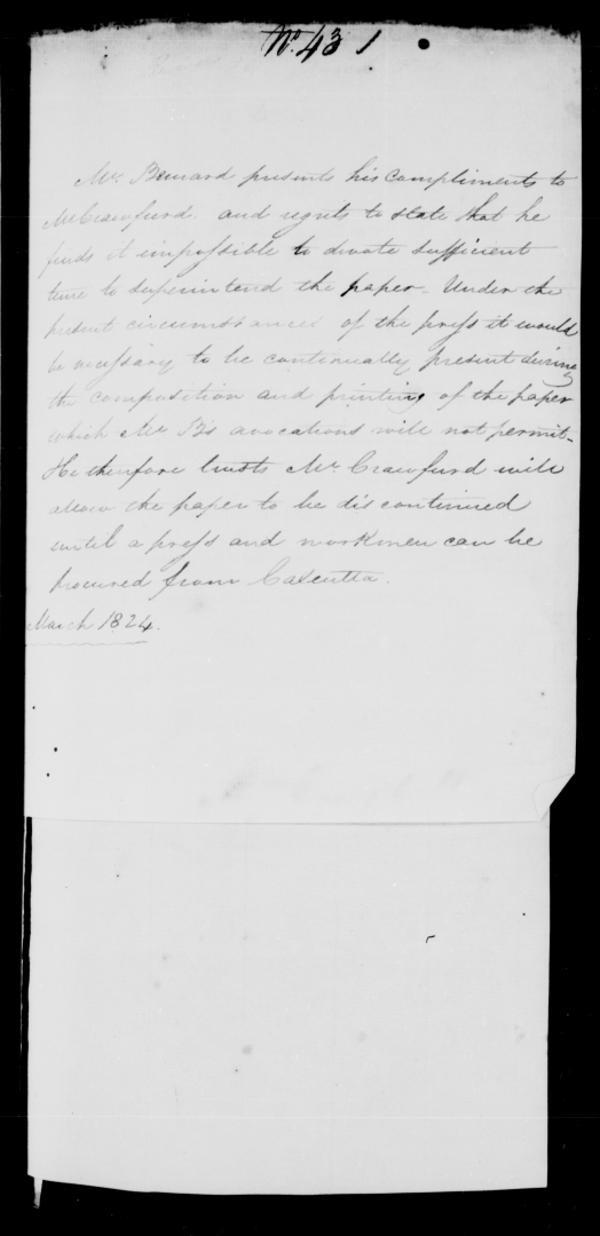 No. 43 1
Mr. Bernard presents his compliments to
Mr Crawfurd. and regrets to state that he
finds it impossible to devote sufficient
time to superintend the paper - Under the
present circumstances of the press it would
be necessary to be continually present during
the composition and printing of the paper
which Mr B's avocations will not permit -
He therefore trusts Mr. Crawfurd will
allow the paper to be discontinued
until a press and workmen can be
procured from Calcutta.
March 1824.